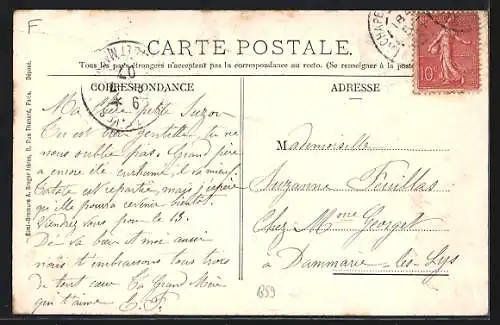 F
CARTE POSTALE.
Tous les pays étrangers n'acceptent pas la correspondance au recto. (Se renseigner à la poste
CORRESPONDANCE
ADRESSE
Ma chère petite Suzon
On est bien gentille, tu ne
nous oublie pas. Grand père
a encore été enrhumé, il va mieux.
est repartie, mais j'espère
qu'elle pourra revenir bientôt.
Viendrez vous pour le 15.
et moi aussi
nous t'embrassons tous trois
de tout cœur Ta Grand Mère
qui t'aime E. F.
Mademoiselle
Suzanne Feuillas
Chez Mme Georget
à Dammarie-les-Lys
10c
859